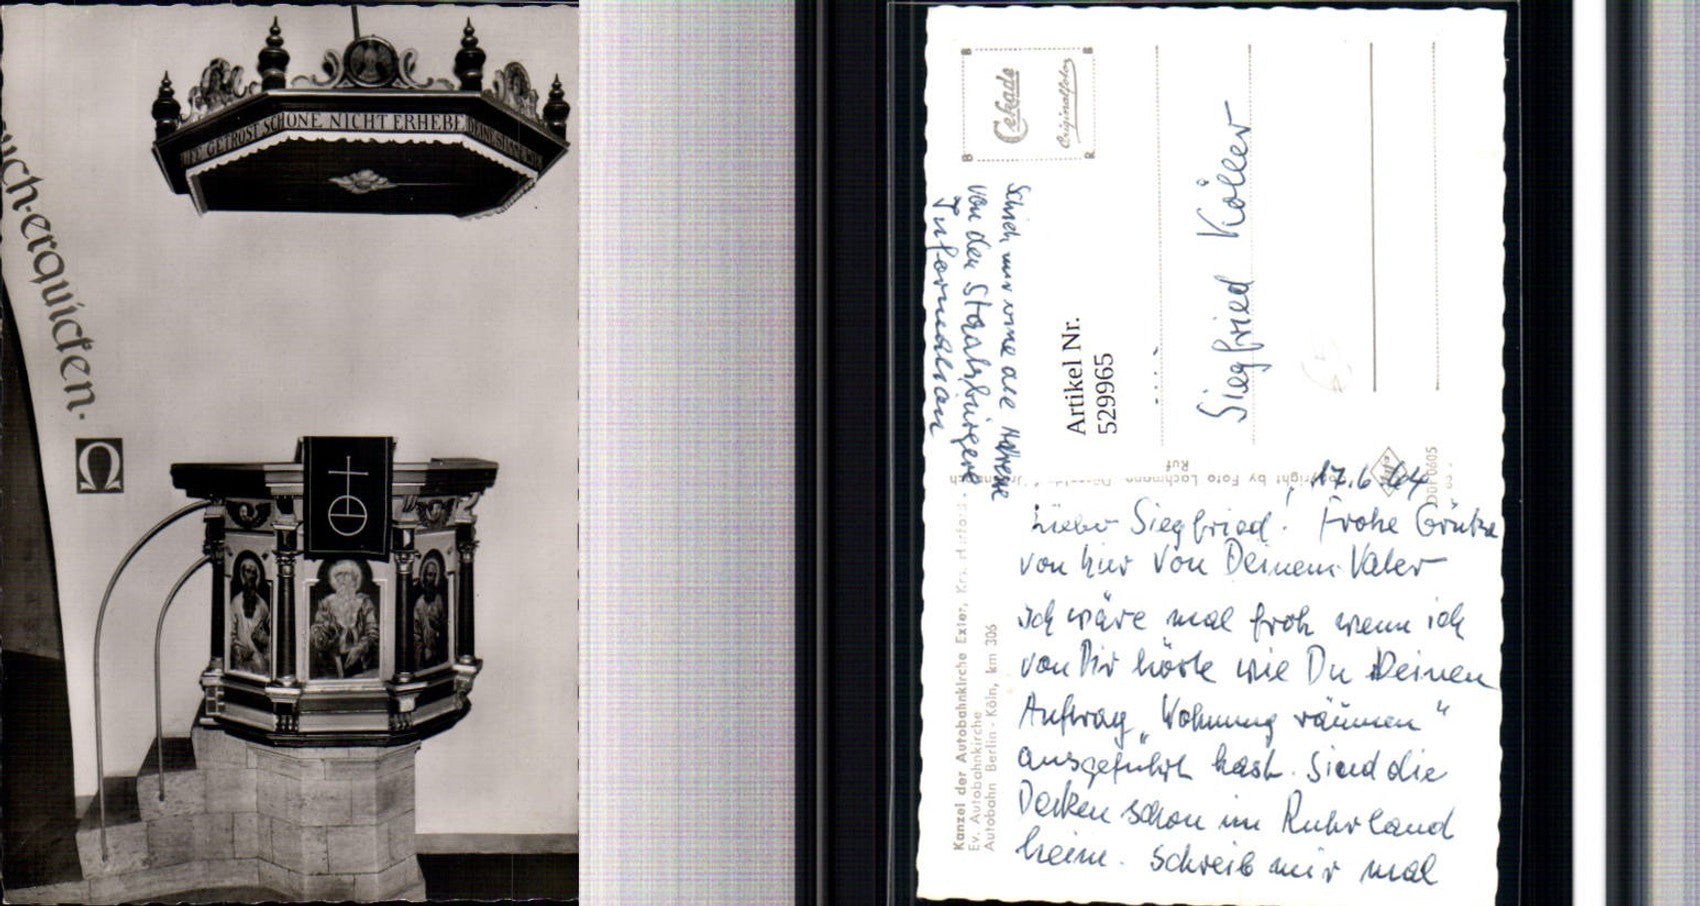 ich·erquicken·
Ω
RUFE GETROST SCHONE NICHT ERHEBE DEINE STIMME WIE
Cekade
Originalfoto
schick mir
von der Staatsbürgere
Information
Artikel Nr.
529965
Siegfried Köller
Copyright by Foto Lochmann
Ruf
17.6.64
Lieber Siegfried! Frohe Grüße
von hier von Deinem Vater
ich wäre mal froh wenn ich
von Dir hörte wie Du Deinen
Auftrag „Wohnung räumen“
ausgeführt hast. Sind die
Decken schon im Ruhrland
heim. Schreib mir mal
Kanzel der Autobahnkirche Exter, Krs. Herford
Ev. Autobahnkirche
Autobahn Berlin - Köln, km 306